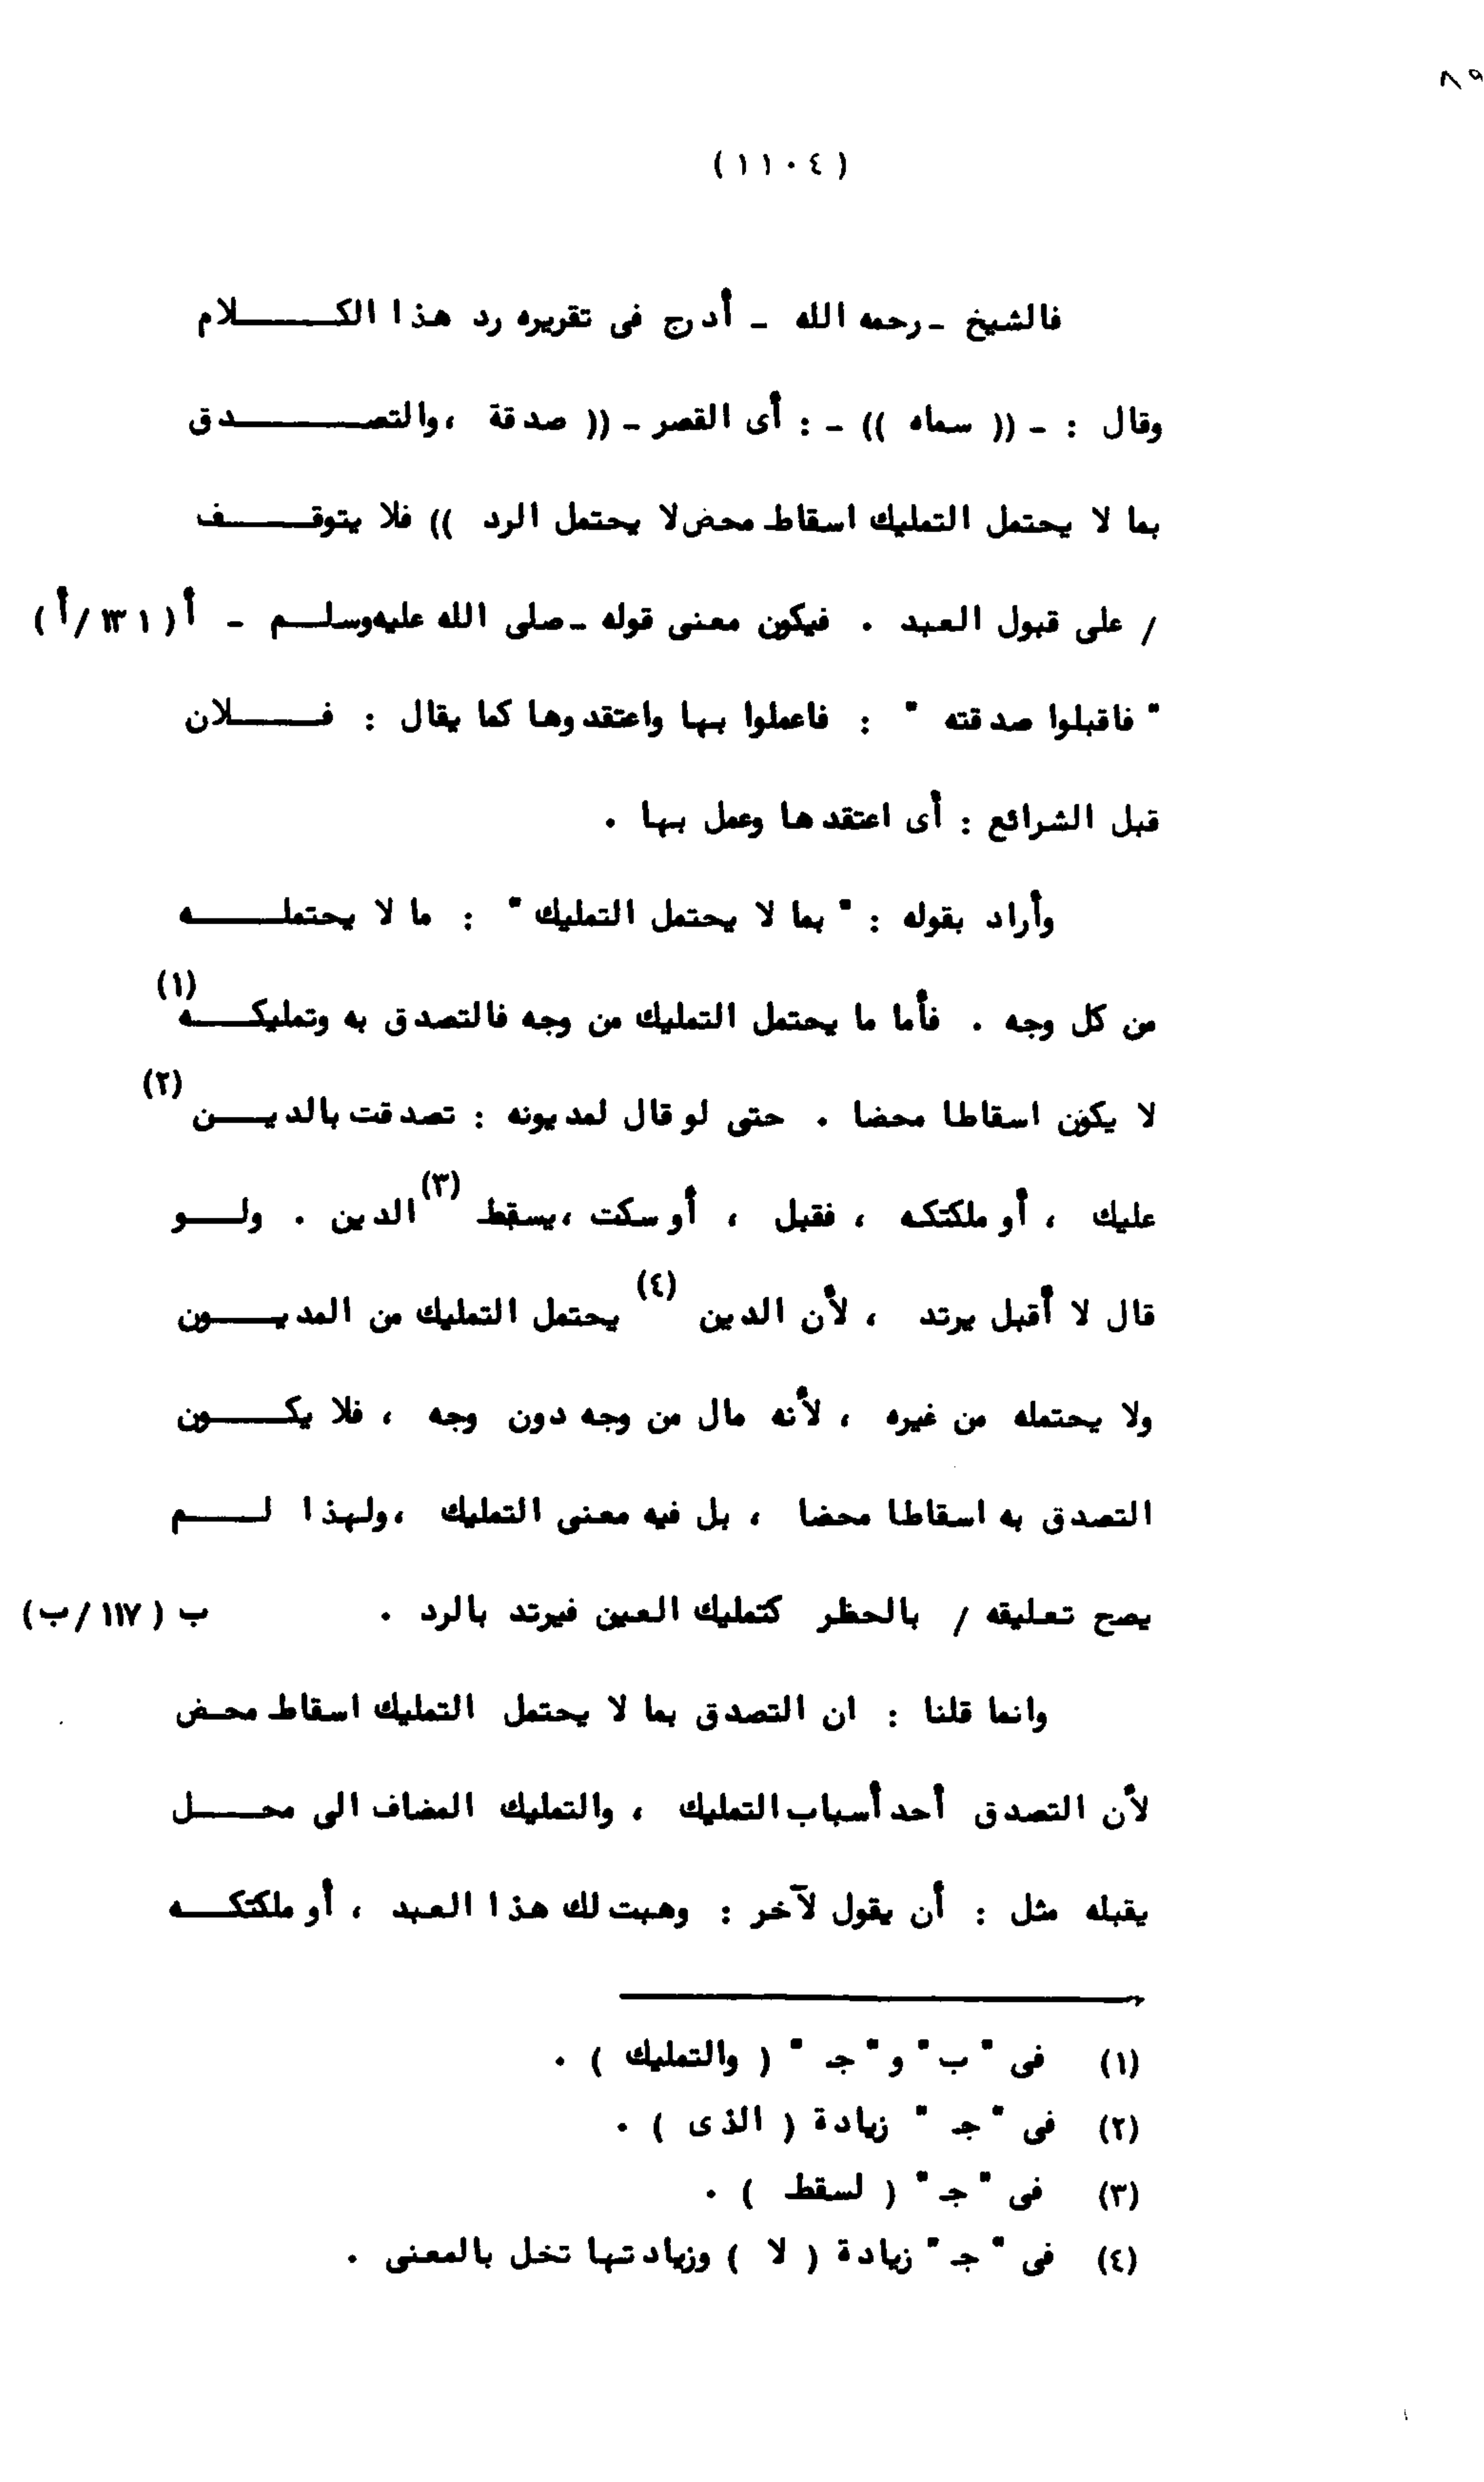 ٨٩
( ١١٠٤ )
فالشيخ - رحمه الله - أدرج فى تقريره رد هذا الكلام
وقال : - (( سماه )) - : أى القصر - (( صدقة ، والتصدق
بما لا يحتمل التمليك اسقاط محض لا يحتمل الرد )) فلا يتوقف
/ على قبول العبد . فيكون معنى قوله - صلى الله عليه وسلم - أ ( ١٣١ /أ )
" فاقبلوا صدقته " : فاعملوا بها واعتقدوها كما يقال : فلان
قبل الشرائع : أى اعتقدها وعمل بها .
وأراد بقوله : " بما لا يحتمل التمليك " : ما لا يحتمله
من كل وجه . فأما ما يحتمل التمليك من وجه فالتصدق به وتمليكه (١)
لا يكون اسقاطا محضا . حتى لو قال لمديونه : تصدقت بالدين (٢)
عليك ، أو ملكتكه ، فقبل ، أو سكت ، يسقط (٣) الدين . ولو
قال لا أقبل يرتد ، لأن الدين (٤) يحتمل التمليك من المديون
ولا يحتمله من غيره ، لأنه مال من وجه دون وجه ، فلا يكون
التصدق به اسقاطا محضا ، بل فيه معنى التمليك ، ولهذا لم
يصح تعليقه / بالحظر كتمليك العين فيرتد بالرد . ب ( ١١٧ /ب )
وانما قلنا : ان التصدق بما لا يحتمل التمليك اسقاط محض
لأن التصدق أحد أسباب التمليك ، والتمليك المضاف الى محل
يقبله مثل : أن يقول لآخر : وهبت لك هذا العبد ، أو ملكتكه
(١) فى " ب " و " جـ " ( والتمليك ) .
(٢) فى " جـ " زيادة ( الذى ) .
(٣) فى " جـ " ( لسقط ) .
(٤) فى " جـ " زيادة ( لا ) وزيادتها تخل بالمعنى .